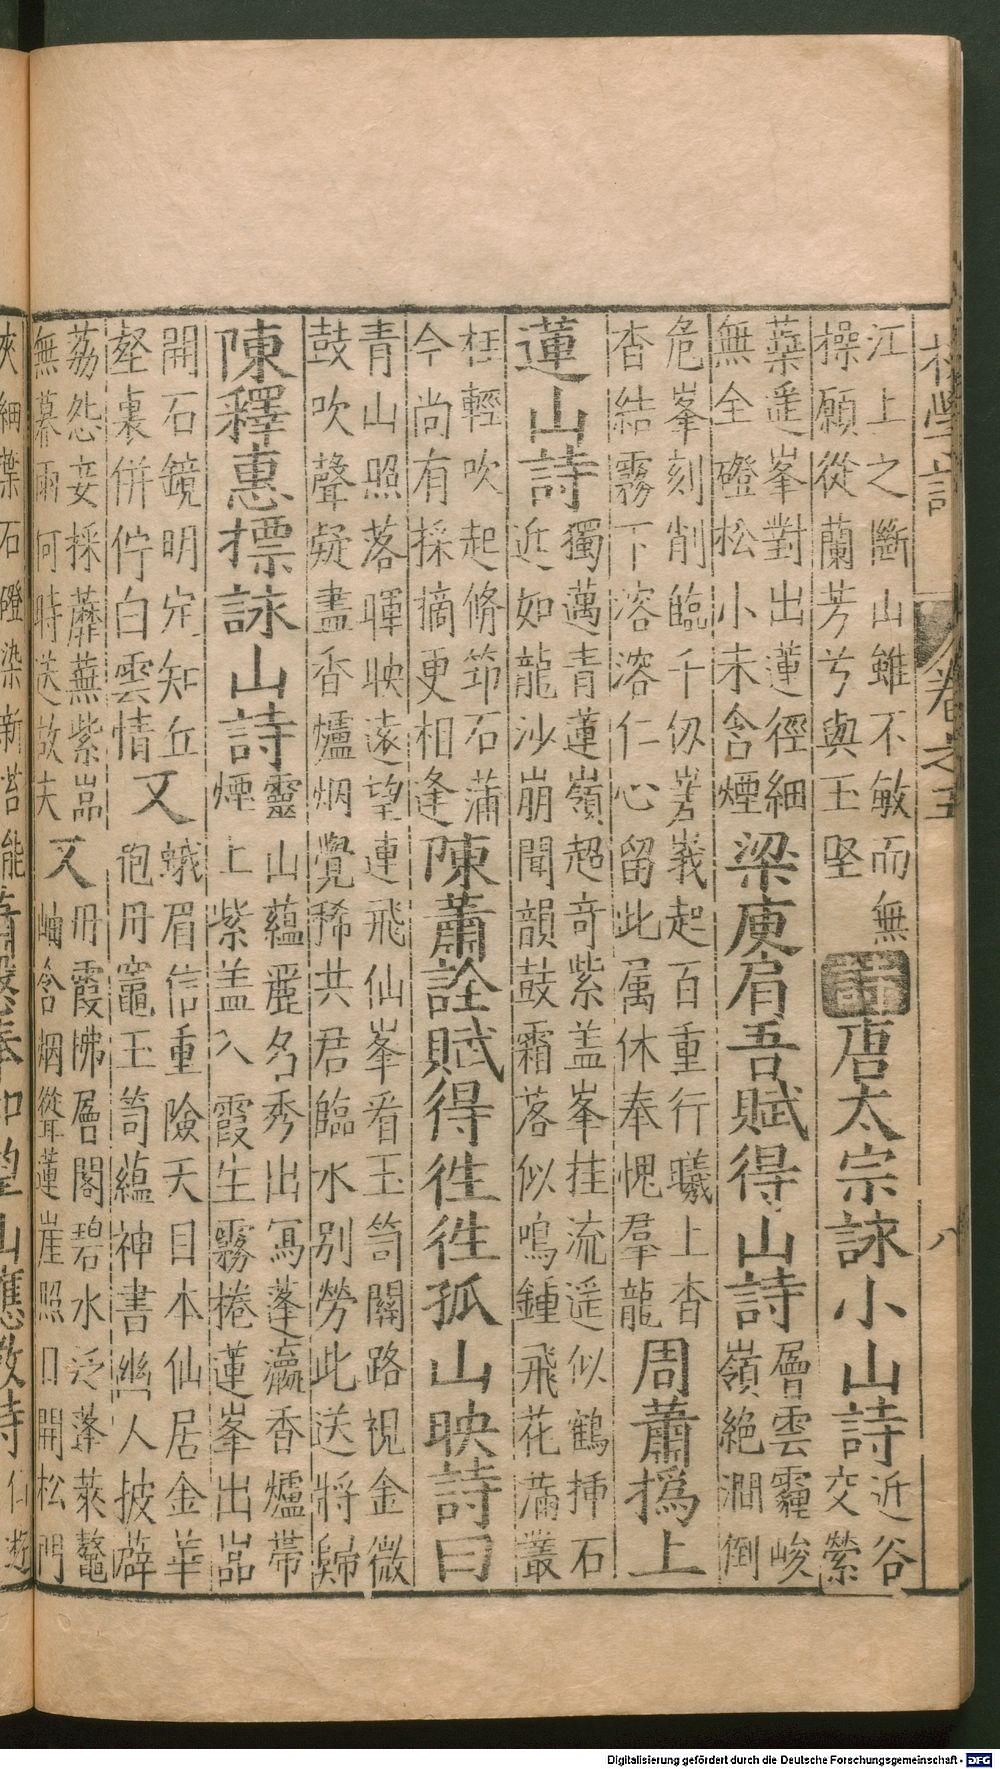 初學記 卷之五 八
江上之斷山雖不敏而無
操願從蘭芳兮與玉堅
詩 唐太宗詠小山詩
近谷
交縈
蘂遥峯對出蓮徑細
無全磴松小未含煙
梁庾肩吾賦得山詩
層雲霾峻
嶺絶澗倒
危峯刻削臨千仭岧嶬起百重行曦上杳
杳結霧下溶溶仁心留此属休奉愧羣龍
周蕭撝上
蓮山詩
獨邁青蓮嶺超奇紫盖峯挂流遥似鶴揷石
近如龍沙崩聞韻鼓霜落似鳴鍾飛花滿叢
枉輕吹起脩筇石蒲
今尚有採摘更相逢
陳蕭詮賦得徃徃孤山映詩曰
青山照落暉映遠望連飛仙峯看玉笥關路視金微
鼓吹聲疑盡香爐烟覺稀共君臨水别勞此送將歸
陳釋惠摽詠山詩
靈山藴麗名秀出冩蓬瀛香爐帶
煙上紫盖入霞生霧捲蓮峯出嵓
開石鏡明定知丘
壑裏併佇白雲情
又
峨眉信重險天目本仙居金華
抱丹竈玉笥藴神書幽人披薜
荔怨妾採蘼蕪紫嵓
無暮雨何時送故夫
又
丹霞拂層閣碧水泛蓬萊鼇
岫含烟聳蓮崖照日開松門
夾細葉石磴染新苔能
蕭愨奉和望山應教詩
仁遊
Digitalisierung gefördert durch die Deutsche Forschungsgemeinschaft - DFG